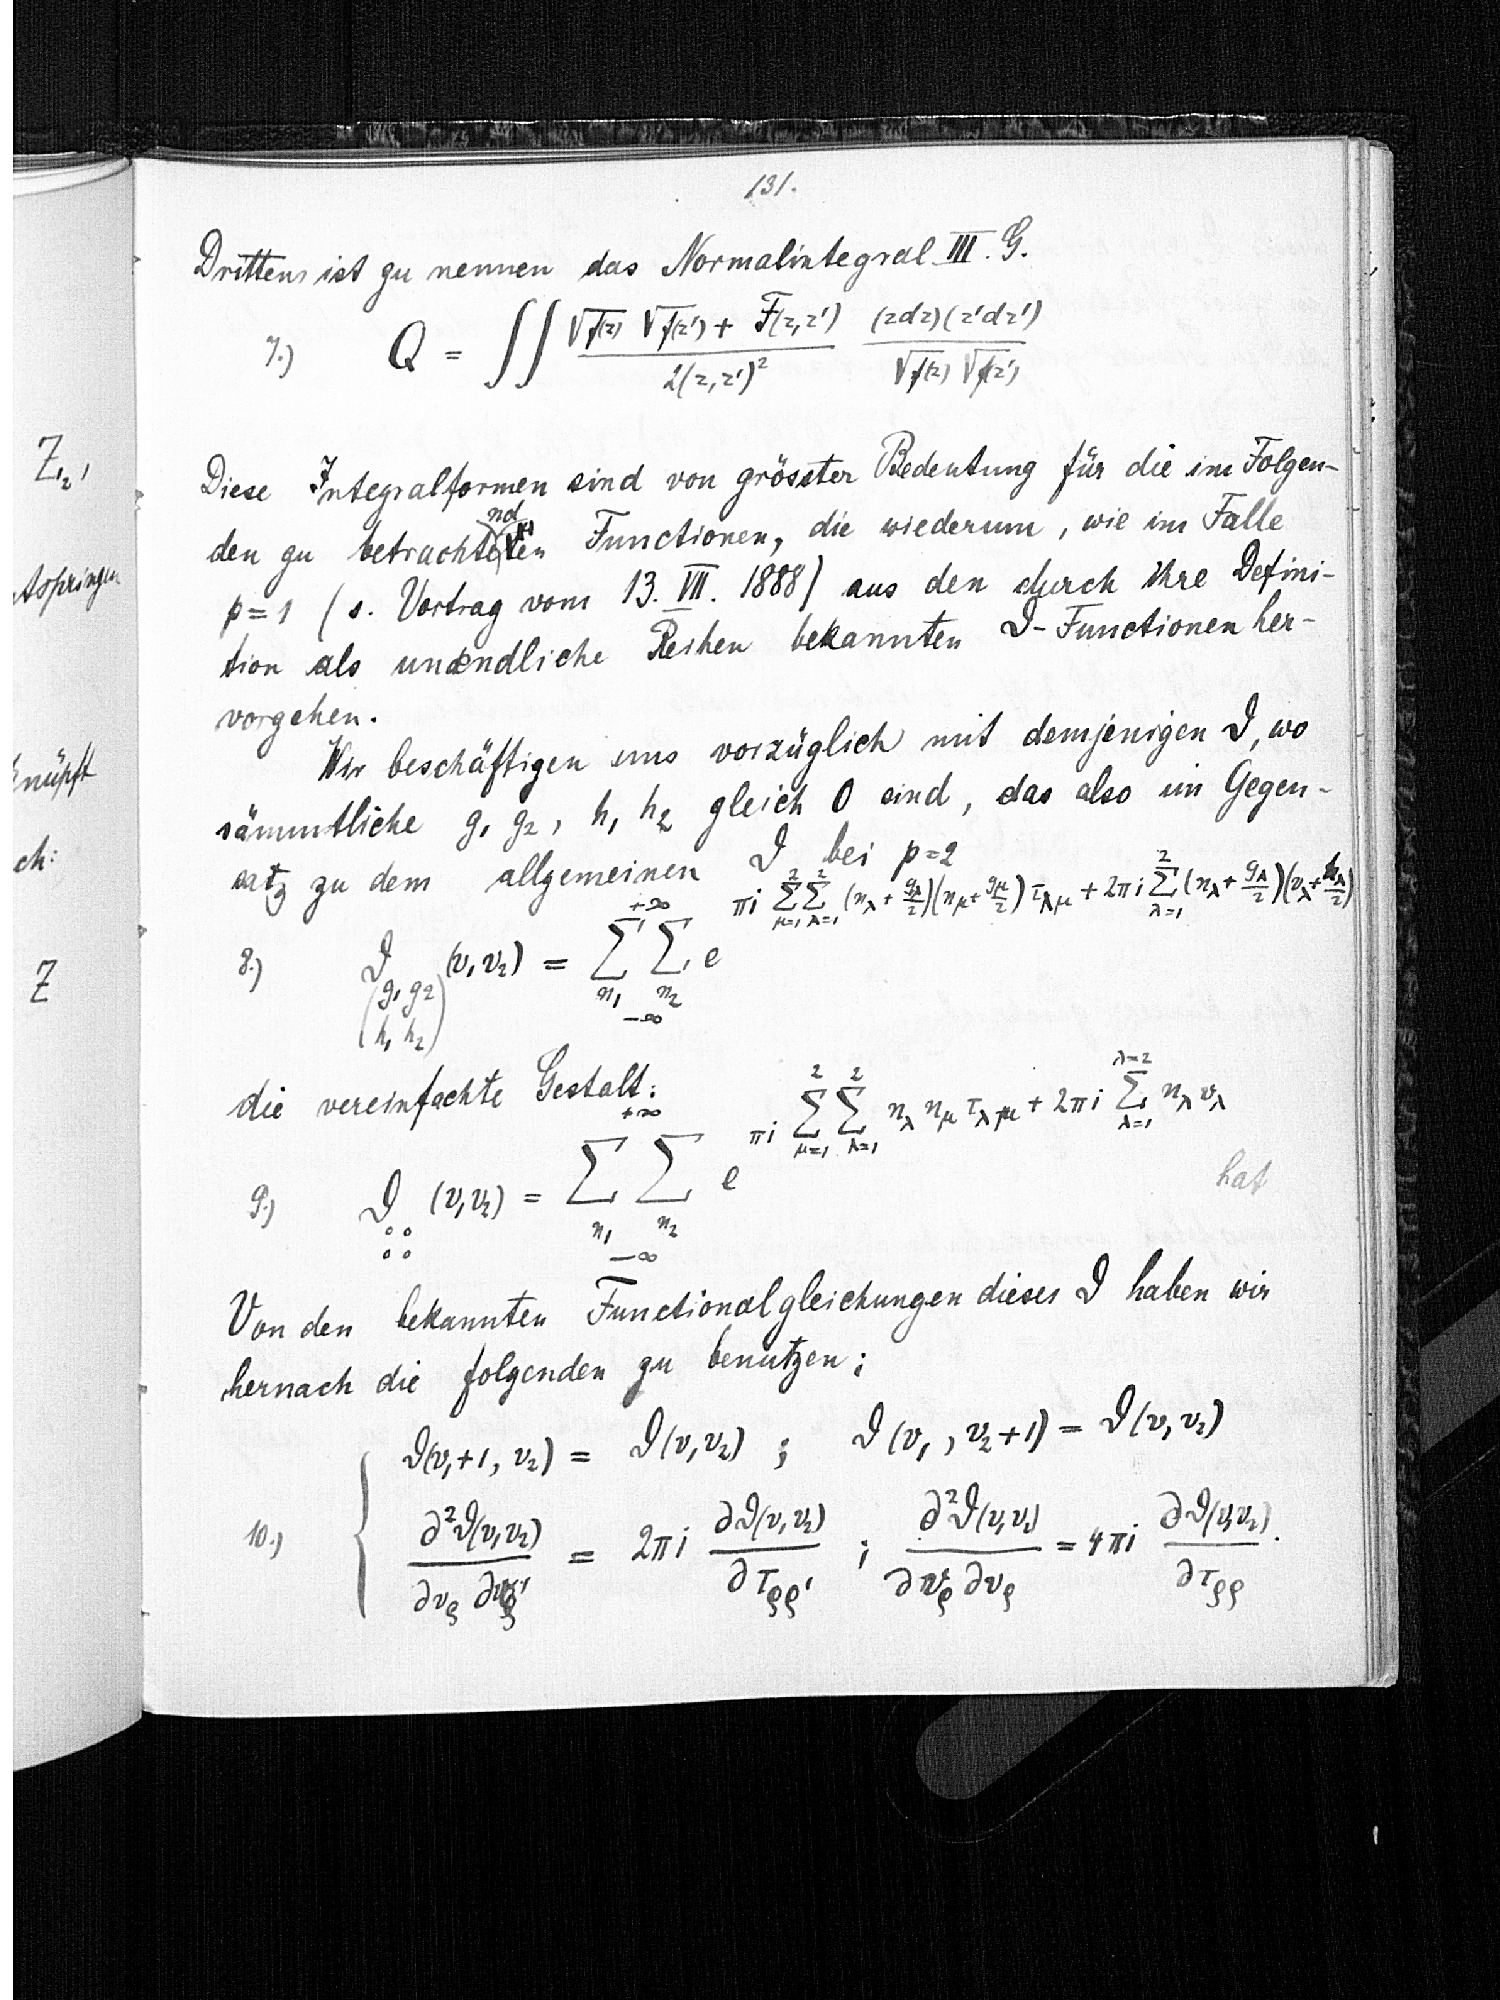 131.
Drittens ist zu nennen das Normalintegral III. G.
7.) Q = ∫∫ (√f(z) √f(z') + F(z,z')) / 2(z,z')² · (zdz)(z'dz') / √f(z) √f(z')
Diese Integralformen sind von grösster Bedeutung für die im Folgen-
den zu betrachtenden Functionen, die wiederum, wie im Falle
p=1 (s. Vortrag vom 13. VII. 1888) aus den durch ihre Defini-
tion als unendliche Reihen bekannten ϑ-Functionen her-
vorgehen.
Wir beschäftigen uns vorzüglich mit demjenigen ϑ, wo
sämmtliche g₁ g₂, h₁ h₂ gleich 0 sind, das also im Gegen-
satz zu dem allgemeinen ϑ bei p=2
8.) ϑ_(g₁ g₂ / h₁ h₂) (v₁ v₂) = Σ_{n₁} Σ_{n₂} _{-∞}^{+∞} e^{πi Σ_{μ=1}^{2} Σ_{λ=1}^{2} (n_λ + g_λ/2)(n_μ + g_μ/2) τ_{λμ} + 2πi Σ_{λ=1}^{2} (n_λ + g_λ/2)(v_λ + h_λ/2)}
die vereinfachte Gestalt:
9.) ϑ_{∘∘ / ∘∘} (v₁ v₂) = Σ_{n₁} Σ_{n₂} _{-∞}^{+∞} e^{πi Σ_{μ=1}^{2} Σ_{λ=1}^{2} n_λ n_μ τ_{λμ} + 2πi Σ_{λ=1}^{λ=2} n_λ v_λ} hat
Von den bekannten Functionalgleichungen dieses ϑ haben wir
hernach die folgenden zu benutzen:
ϑ(v₁+1, v₂) = ϑ(v₁ v₂) ; ϑ(v₁, v₂+1) = ϑ(v₁ v₂)
10.) ∂²ϑ(v₁ v₂) / ∂v_ρ ∂v_ρ' = 2πi ∂ϑ(v₁ v₂) / ∂τ_ρρ' ; ∂²ϑ(v₁ v₂) / ∂v_ρ ∂v_ρ = 4πi ∂ϑ(v₁ v₂) / ∂τ_ρρ .
Z₁₂,
knüpft
ch:
Z